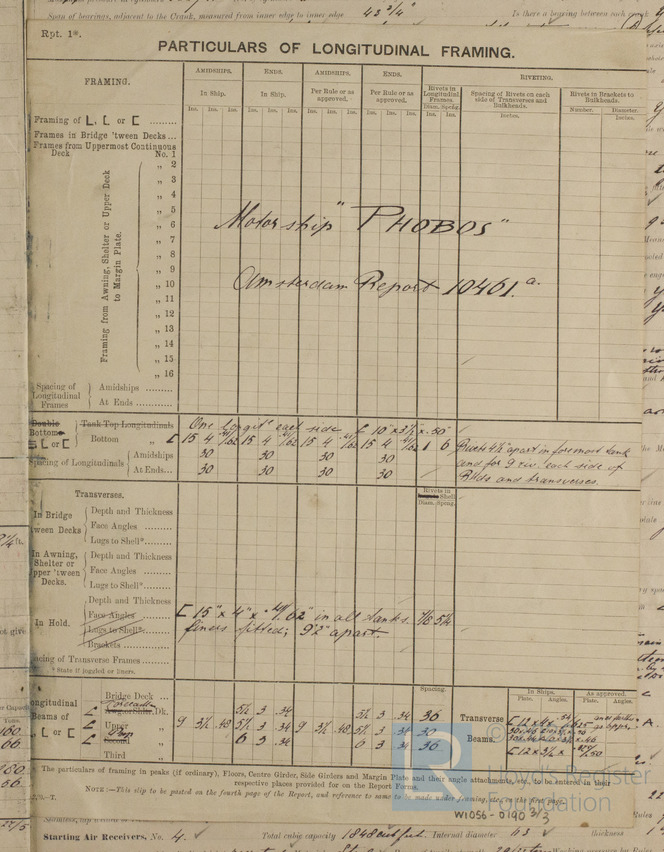 Span of bearings, adjacent to the Crank, measured from inner edge to inner edge 43 3/4" Is there a bearing between each crank
Rpt. 1*.
PARTICULARS OF LONGITUDINAL FRAMING.
FRAMING. AMIDSHIPS. ENDS. AMIDSHIPS. ENDS. RIVETING.
In Ship. In Ship. Per Rule or as approved. Per Rule or as approved. Rivets in Longitudinal Frames. Spacing of Rivets on each side of Transverses and Bulkheads. Rivets in Brackets to Bulkheads.
Ins. Ins. Ins. Ins. Ins. Ins. Ins. Ins. Ins. Ins. Ins. Ins. Diam. Spcg. Ins. Ins. Inches. Number. Diameter. Inches.
Framing of L, [ or [ .........
Frames in Bridge 'tween Decks ...
Frames from Uppermost Continuous Deck No. 1
„ 2
„ 3
„ 4
„ 5
„ 6
„ 7
„ 8
„ 9
„ 10
„ 11
„ 12
„ 13
„ 14
„ 15
„ 16
Framing from Awning, Shelter or Upper Deck to Margin Plate.
Motorship "PHOBOS"
Amsterdam Report 10461.a.
Spacing of Longitudinal Frames
Amidships .........
At Ends .........
Double Bottom L, [ or [
Tank Top Longitudinals One Longitl each side [ 10" x 3½" x .50"
Bottom „ [ 15 4 15 4 15 4 15 4 1 6 Rivets 4½" apart in foremost tank
Spacing of Longitudinals Amidships 30 30 30 30 and for 9 rws. each side of
At Ends ... 30 30 30 30 BHds and transverses.
Transverses. Rivets in Shell Diam. Spcng.
In Bridge 'tween Decks
Depth and Thickness
Face Angles ......
Lugs to Shell* ......
In Awning, Shelter or Upper 'tween Decks.
Depth and Thickness
Face Angles ......
Lugs to Shell* ......
In Hold.
Depth and Thickness
Face Angles [ 15" x 4" x in all tanks. 7/8 5¼
Lugs to Shell* liners fitted; 9'2" apart
Brackets
Spacing of Transverse Frames
* State if joggled or liners.
Longitudinal Beams of L, [ or [
Spacing. In Ships. As approved.
Plate. Angles. Plate. Angles.
Bridge Deck ...
Forecastle Dk. 5½ 3 .34 5½ 3 .34 36 Transverse
Upper „ 9 3½ .48 5½ 3 .34 9 3½ .48 5½ 3 .34 30
Poop Second „ 6 3 .34 6 3 .34 36 Beams
Third „
* The particulars of framing in peaks (if ordinary), Floors, Centre Girder, Side Girders and Margin Plate and their angle attachments, etc., to be entered in their
respective places provided for on the Report Forms.
NOTE :—This slip to be posted on the fourth page of the Report, and reference to same to be made under framing, etc., on the first page.
© Lloyd's Register
Foundation
W1056-0190 3/3
Starting Air Receivers. No. 4. Total cubic capacity 1848 cub ft. Internal diameter 63 thickness 1